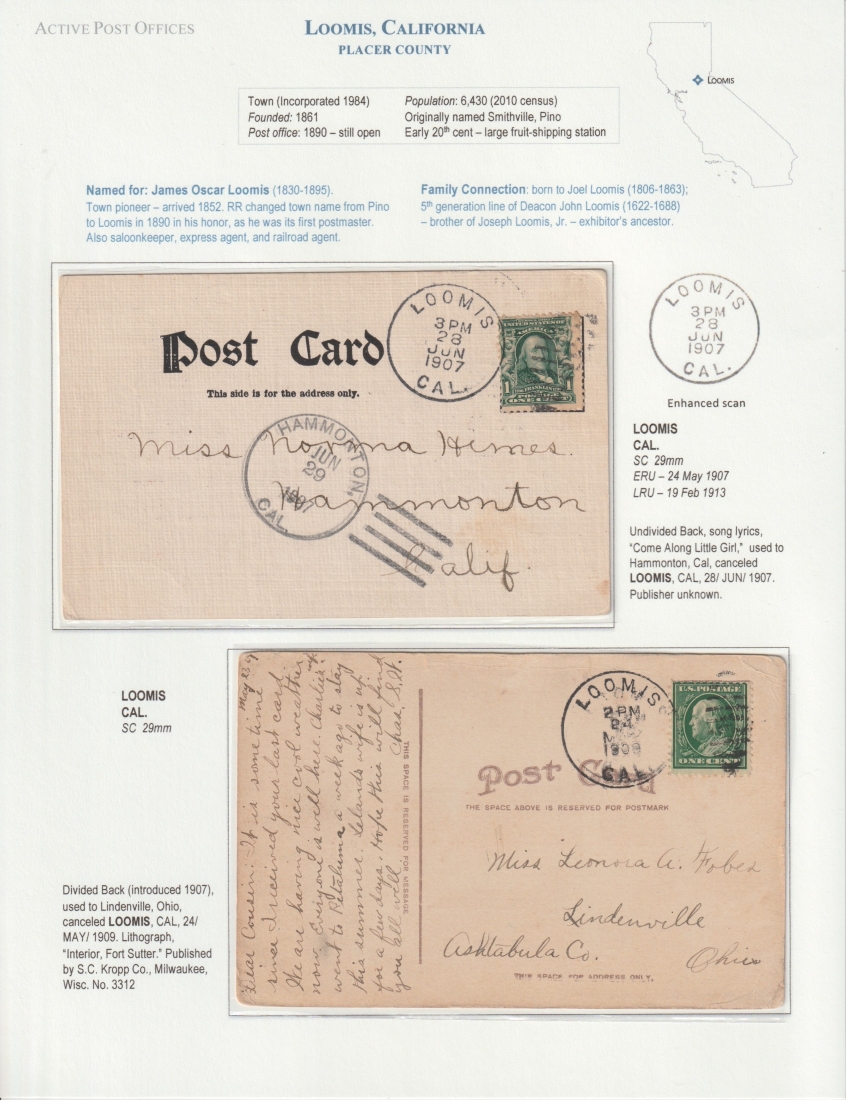 ACTIVE POST OFFICES
LOOMIS, CALIFORNIA
PLACER COUNTY
LOOMIS
Town (Incorporated 1984)
Founded: 1861
Post office: 1890 – still open
Population: 6,430 (2010 census)
Originally named Smithville, Pino
Early 20th cent – large fruit-shipping station
Named for: James Oscar Loomis (1830-1895).
Town pioneer – arrived 1852. RR changed town name from Pino
to Loomis in 1890 in his honor, as he was its first postmaster.
Also saloonkeeper, express agent, and railroad agent.
Family Connection: born to Joel Loomis (1806-1863);
5th generation line of Deacon John Loomis (1622-1688)
– brother of Joseph Loomis, Jr. – exhibitor's ancestor.
Post Card
This side is for the address only.
LOOMIS
3 PM
28
JUN
1907
CAL.
UNITED STATES OF
AMERICA
1 1
POSTAGE
ONE CENT
HAMMONTON,
JUN
29
1907
CAL.
Miss Norma Himes.
Hammonton
Calif.
LOOMIS
3 PM
28
JUN
1907
CAL.
Enhanced scan
LOOMIS
CAL.
SC 29mm
ERU – 24 May 1907
LRU – 19 Feb 1913
Undivided Back, song lyrics,
"Come Along Little Girl," used to
Hammonton, Cal, canceled
LOOMIS, CAL, 28/ JUN/ 1907.
Publisher unknown.
LOOMIS
CAL.
SC 29mm
Divided Back (introduced 1907),
used to Lindenville, Ohio,
canceled LOOMIS, CAL, 24/
MAY/ 1909. Lithograph,
"Interior, Fort Sutter." Published
by S.C. Kropp Co., Milwaukee,
Wisc. No. 3312
May 23
Dear Cousin: It is some time
since I received your last card.
We are having nice cool weather
now. Everyone is well here. Charlie's wife
went to Petaluma a week ago to stay
this summer. Leland's wife is up
for a few days. Hope this will find
you all well. Chas. S.
THIS SPACE IS RESERVED FOR MESSAGE
LOOMIS
2 PM
24
MAY
1909
CAL.
U.S. POSTAGE
ONE CENT
Post Card
THE SPACE ABOVE IS RESERVED FOR POSTMARK
Miss Leonora A. Fobes
Lindenville
Ashtabula Co.
Ohio
THIS SPACE FOR ADDRESS ONLY.